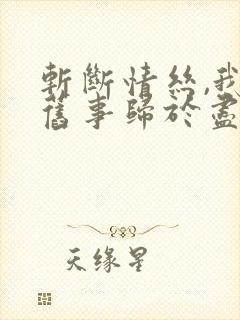 斬斷情丝,我
舊事歸於盡
天缘星